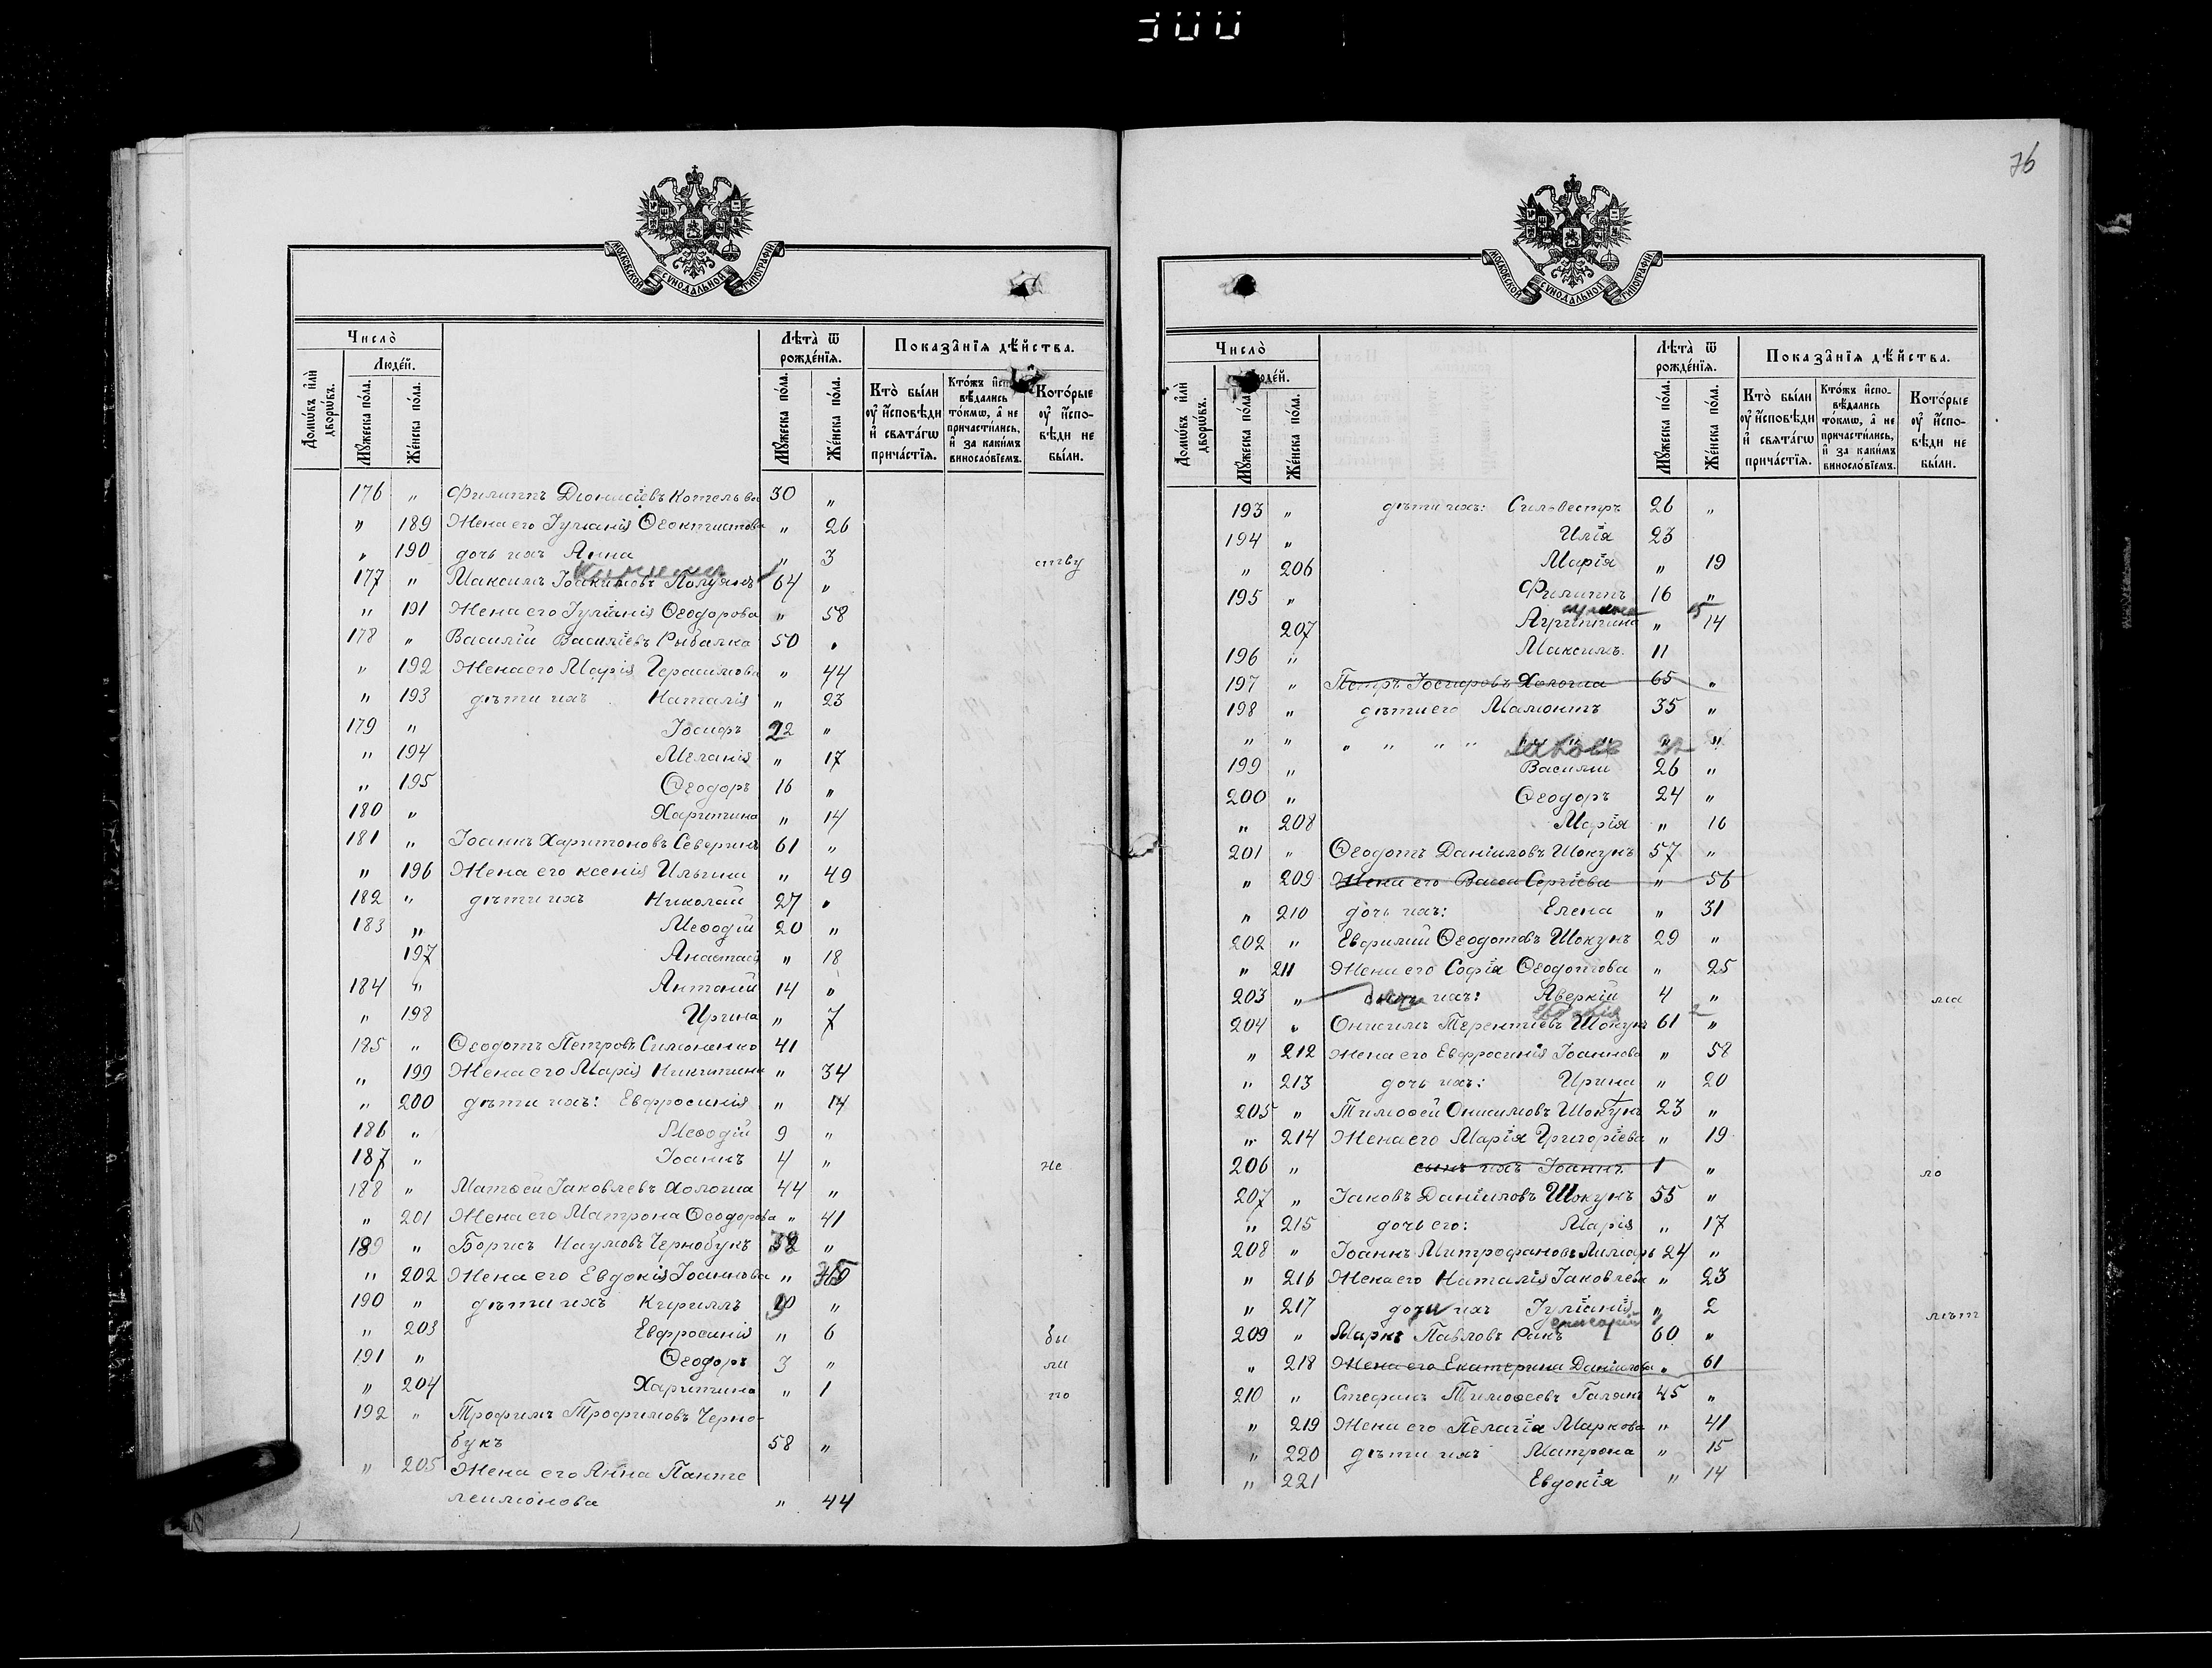 76
МОСКОВСКОЙ СѴНОДАЛЬНОЙ ТИПОГРАФІИ
Число̀
Люде́й.
Домѡ́въ и҆лѝ дворѡ́въ.
Мꙋ́жеска по́ла.
Же́нска по́ла.
Лѣ́та ѿ рожде́нїѧ.
Мꙋ́жеска по́ла.
Же́нска по́ла.
Показа̑нїѧ дѣ́йства.
Кто̀ бы́ли ᲂу҆ и҆сповѣ́ди и҆ свѧта́гѡ прича́стїѧ.
Кто́жъ и҆сповѣ́дались то́кмѡ, а҆ не причасти́лись, и҆ за каки́мъ винослові́емъ.
Кото́рые ᲂу҆ и҆сповѣ́ди не бы́ли.
176 " Филиппъ Діонисіевъ 30 "
" 189 Жена его Іуліанія Ѳеоктистова " 26
" 190 дочь ихъ Анна " 3 ству
177 " Максимъ Іоакимовъ Полуянъ 64 "
" 191 Жена его Іуліанія Ѳеодорова " 58
178 " Василій Василіевъ Рыбалка 50 "
" 192 Жена его Марія Герасимова " 44
" 193 дѣти ихъ Наталія " 23
179 " Іосифъ 22 "
" 194 Меланія " 17
" 195 Ѳеодоръ 16 "
180 " Харитина " 14
181 " Іоаннъ Харитоновъ Северинъ 61 "
" 196 Жена его Ксенія Ильина " 49
182 " дѣти ихъ Николай 27 "
183 " Меѳодій 20 "
197 Анастасія " 18
184 " Антоній 14 "
" 198 Ирина " 7
185 " Ѳеодотъ Петровъ Симоненко 41
" 199 Жена его Марія Никитина " 34
" 200 дѣти ихъ: Евфросинія " 14
186 " Меѳодій 9 "
187 " Іоаннъ 4 " не
188 " Матѳей Іаковлевъ Холоша 44 "
" 201 Жена его Матрона Ѳеодорова " 41
189 " Борисъ Наумовъ Чернобукъ "
" 202 Жена его Евдокія Іоаннова "
190 " дѣти ихъ Кириллъ "
" 203 Евфросинія " 6 бы
191 " Ѳеодоръ 3 " ли
" 204 Харитина " 1 по
192 " Трофимъ Трофимовъ Черно-
букъ 58 "
" 205 Жена его Анна Панте
леимонова " 44
МОСКОВСКОЙ СѴНОДАЛЬНОЙ ТИПОГРАФІИ
Число̀
Люде́й.
Домѡ́въ и҆лѝ дворѡ́въ.
Мꙋ́жеска по́ла.
Же́нска по́ла.
Лѣ́та ѿ рожде́нїѧ.
Мꙋ́жеска по́ла.
Же́нска по́ла.
Показа̑нїѧ дѣ́йства.
Кто̀ бы́ли ᲂу҆ и҆сповѣ́ди и҆ свѧта́гѡ прича́стїѧ.
Кто́жъ и҆сповѣ́дались то́кмѡ, а҆ не причасти́лись, и҆ за каки́мъ винослові́емъ.
Кото́рые ᲂу҆ и҆сповѣ́ди не бы́ли.
193 " дѣти ихъ: Силвестръ 26 "
194 " Илія 23
" 206 Марія " 19
195 " Филиппъ 16 "
207 Агриппина " 14
196 " Максимъ 11
197 " Петръ Іосифовъ Холоша 65 "
198 " дѣти его Мамонтъ 35 "
" " " " " " Іаковъ 32 "
199 " Василій 26 "
200 " Ѳеодоръ 24 "
" 208 Марія " 16
201 " Ѳеодотъ Даніиловъ Шокунъ 57 "
" 209 Жена его Васса Сергіева " 56
" 210 дочь ихъ: Елена " 31
202 " Евфимій Ѳеодотовъ Шокунъ 29 "
" 211 Жена его Софія Ѳеодотова " 25
203 " ихъ: Аверкій 4 " ма
Евдокія 2
204 " Онисимъ Терентіевъ Шокунъ 61 "
" 212 Жена его Евфросинія Іоаннова " 58
" 213 дочь ихъ: Ирина " 20
205 " Тимоѳей Онисимовъ Шокунъ 23 "
" 214 Жена его Марія Григоріева " 19
206 " сынъ ихъ Іоаннъ 1 " ло
207 " Іаковъ Даніиловъ Шокунъ 55 "
" 215 дочь его: Марія " 17
208 " Іоаннъ Митрофановъ Лимаръ 24 "
" 216 Жена его Наталія Іаковлева " 23
" 217 дочи ихъ Іуліанія " 2 лѣт
Григорій
209 " Маркъ Павловъ Ракъ 60 "
" 218 Жена его Екатерина Даніилова " 61
210 " Стефанъ Тимоѳеевъ Галянъ 45 "
" 219 Жена его Пелагія Маркова " 41
" 220 дѣти ихъ Матрона " 15
" 221 Евдокія " 14